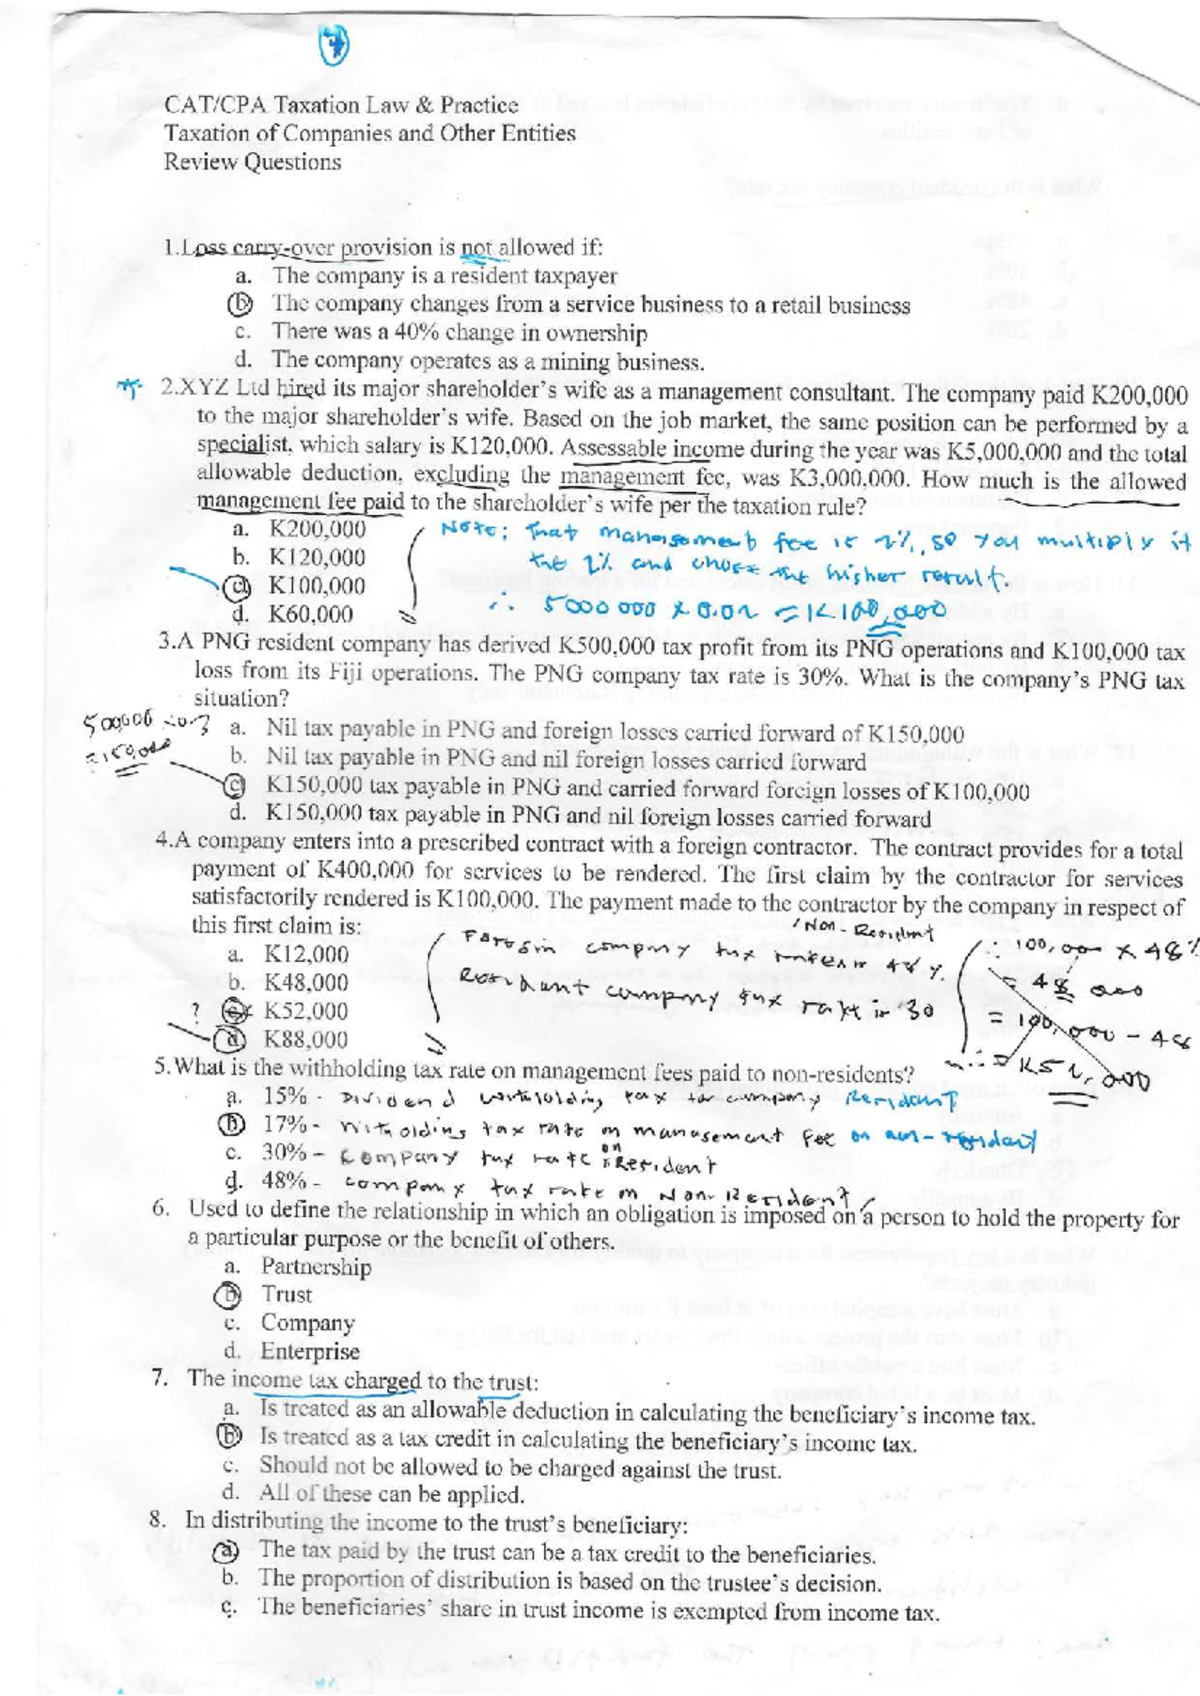 CAT/CPA Taxation Law & Practice
Taxation of Companies and Other Entities
Review Questions
1.Loss carry-over provision is not allowed if:
a. The company is a resident taxpayer
b The company changes from a service business to a retail business
c. There was a 40% change in ownership
d. The company operates as a mining business.
2.XYZ Ltd hired its major shareholder's wife as a management consultant. The company paid K200,000
to the major shareholder's wife. Based on the job market, the same position can be performed by a
specialist, which salary is K120,000. Assessable income during the year was K5,000,000 and the total
allowable deduction, excluding the management fee, was K3,000,000. How much is the allowed
management fee paid to the shareholder's wife per the taxation rule?
a. K200,000
Note: that management fee is 2%, so you multiply it
b. K120,000
the 2% and chose the higher result.
c K100,000
∴ 5000 000 x 0.02 = K100,000
d. K60,000
3.A PNG resident company has derived K500,000 tax profit from its PNG operations and K100,000 tax
loss from its Fiji operations. The PNG company tax rate is 30%. What is the company's PNG tax
situation?
500,000 x 0.3
a. Nil tax payable in PNG and foreign losses carried forward of K150,000
= 150,000
b. Nil tax payable in PNG and nil foreign losses carried forward
c K150,000 tax payable in PNG and carried forward foreign losses of K100,000
d. K150,000 tax payable in PNG and nil foreign losses carried forward
4.A company enters into a prescribed contract with a foreign contractor. The contract provides for a total
payment of K400,000 for services to be rendered. The first claim by the contractor for services
satisfactorily rendered is K100,000. The payment made to the contractor by the company in respect of
this first claim is:
/ Non - Resident
a. K12,000
Foreign company tax rate is 48%.
∴ 100,000 x 48%
b. K48,000
Resident company tax rate is 30
= 48 000
? c K52,000
= 100,000 - 48
d K88,000
∴ = K52,000
5.What is the withholding tax rate on management fees paid to non-residents?
a. 15% - Dividend withholding tax to company Resident
b 17% - Witholding tax rate on management fee on non-resident
c. 30% - Company tax rate on Resident
d. 48% - company tax rate on Non-Resident
6. Used to define the relationship in which an obligation is imposed on a person to hold the property for
a particular purpose or the benefit of others.
a. Partnership
b Trust
c. Company
d. Enterprise
7. The income tax charged to the trust:
a. Is treated as an allowable deduction in calculating the beneficiary's income tax.
b Is treated as a tax credit in calculating the beneficiary's income tax.
c. Should not be allowed to be charged against the trust.
d. All of these can be applied.
8. In distributing the income to the trust's beneficiary:
a The tax paid by the trust can be a tax credit to the beneficiaries.
b. The proportion of distribution is based on the trustee's decision.
c. The beneficiaries' share in trust income is exempted from income tax.